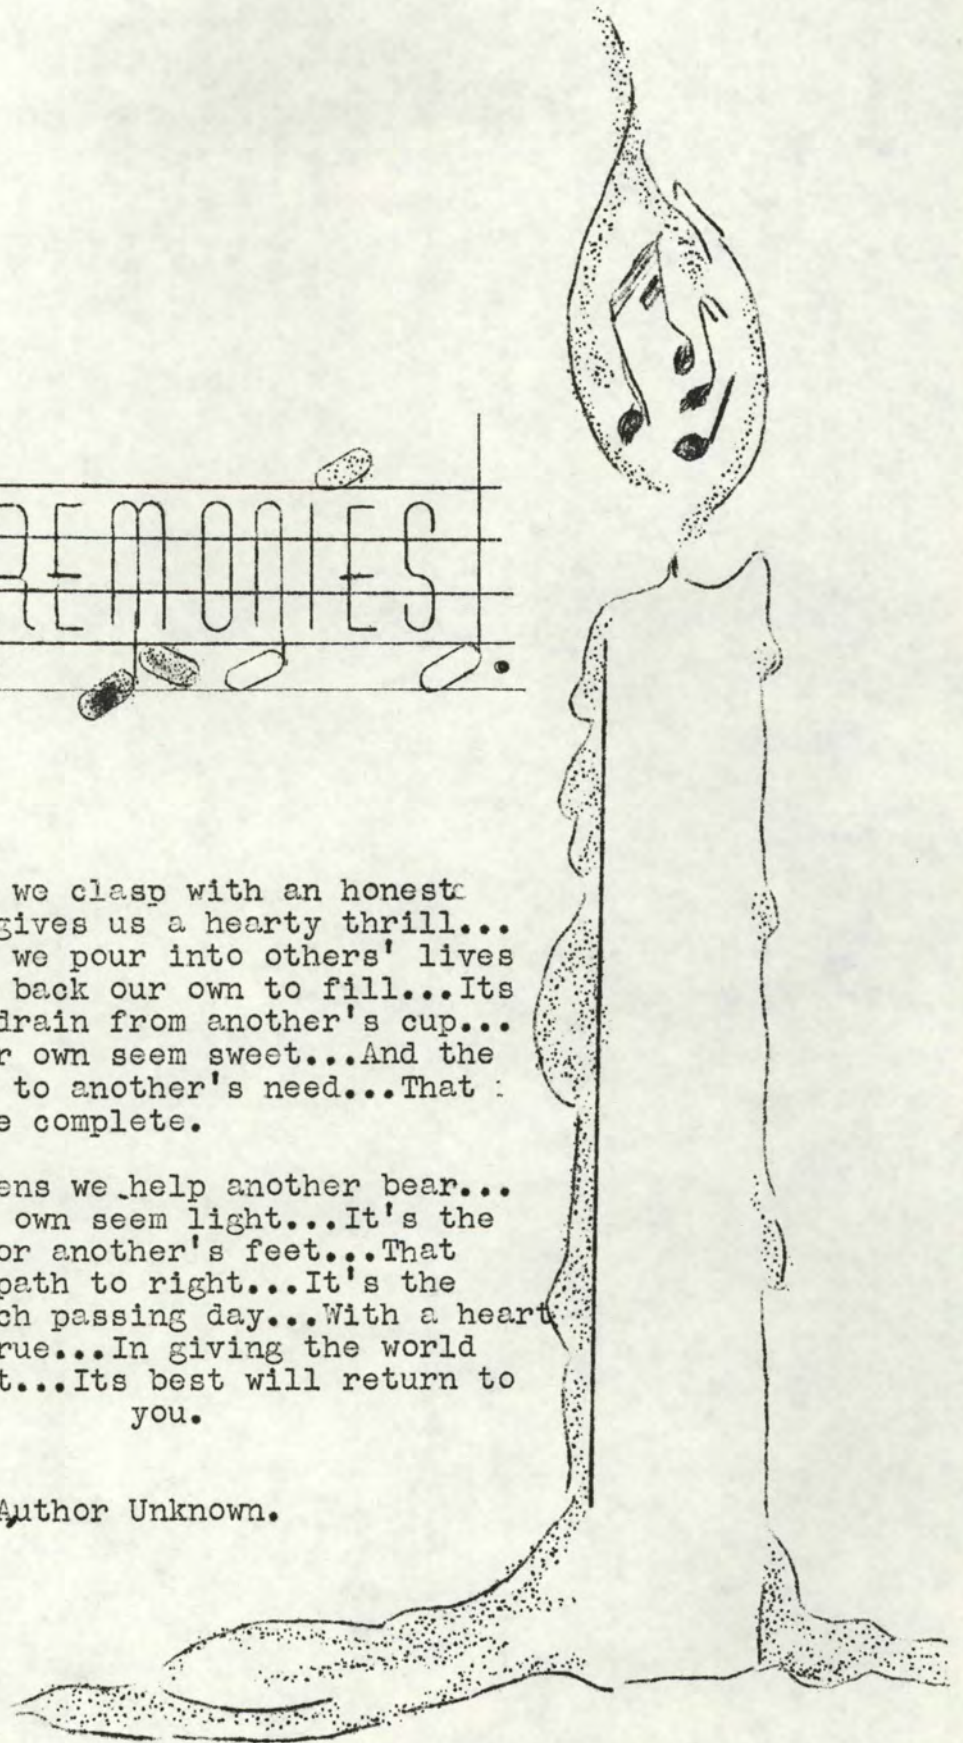 REMONIES
we clasp with an honest
gives us a hearty thrill...
we pour into others' lives
back our own to fill...Its
drain from another's cup...
r own seem sweet...And the
to another's need...That
e complete.
ens we help another bear...
own seem light...It's the
or another's feet...That
path to right...It's the
ch passing day...With a heart
rue...In giving the world
t...Its best will return to
you.
Author Unknown.